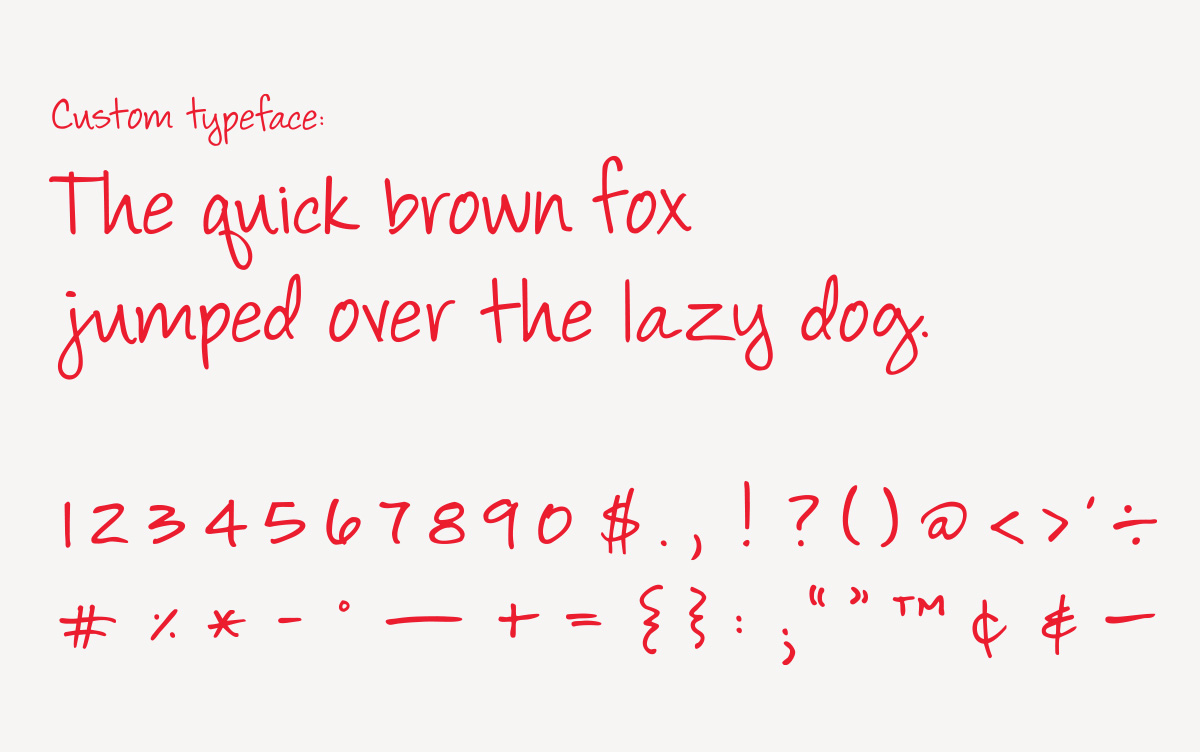 Custom typeface:
The quick brown fox
jumped over the lazy dog.
1 2 3 4 5 6 7 8 9 0 $ . , ! ? ( ) @ < > ' ÷
# % * - ° — + = { } : ; “ ” ™ ¢ & –